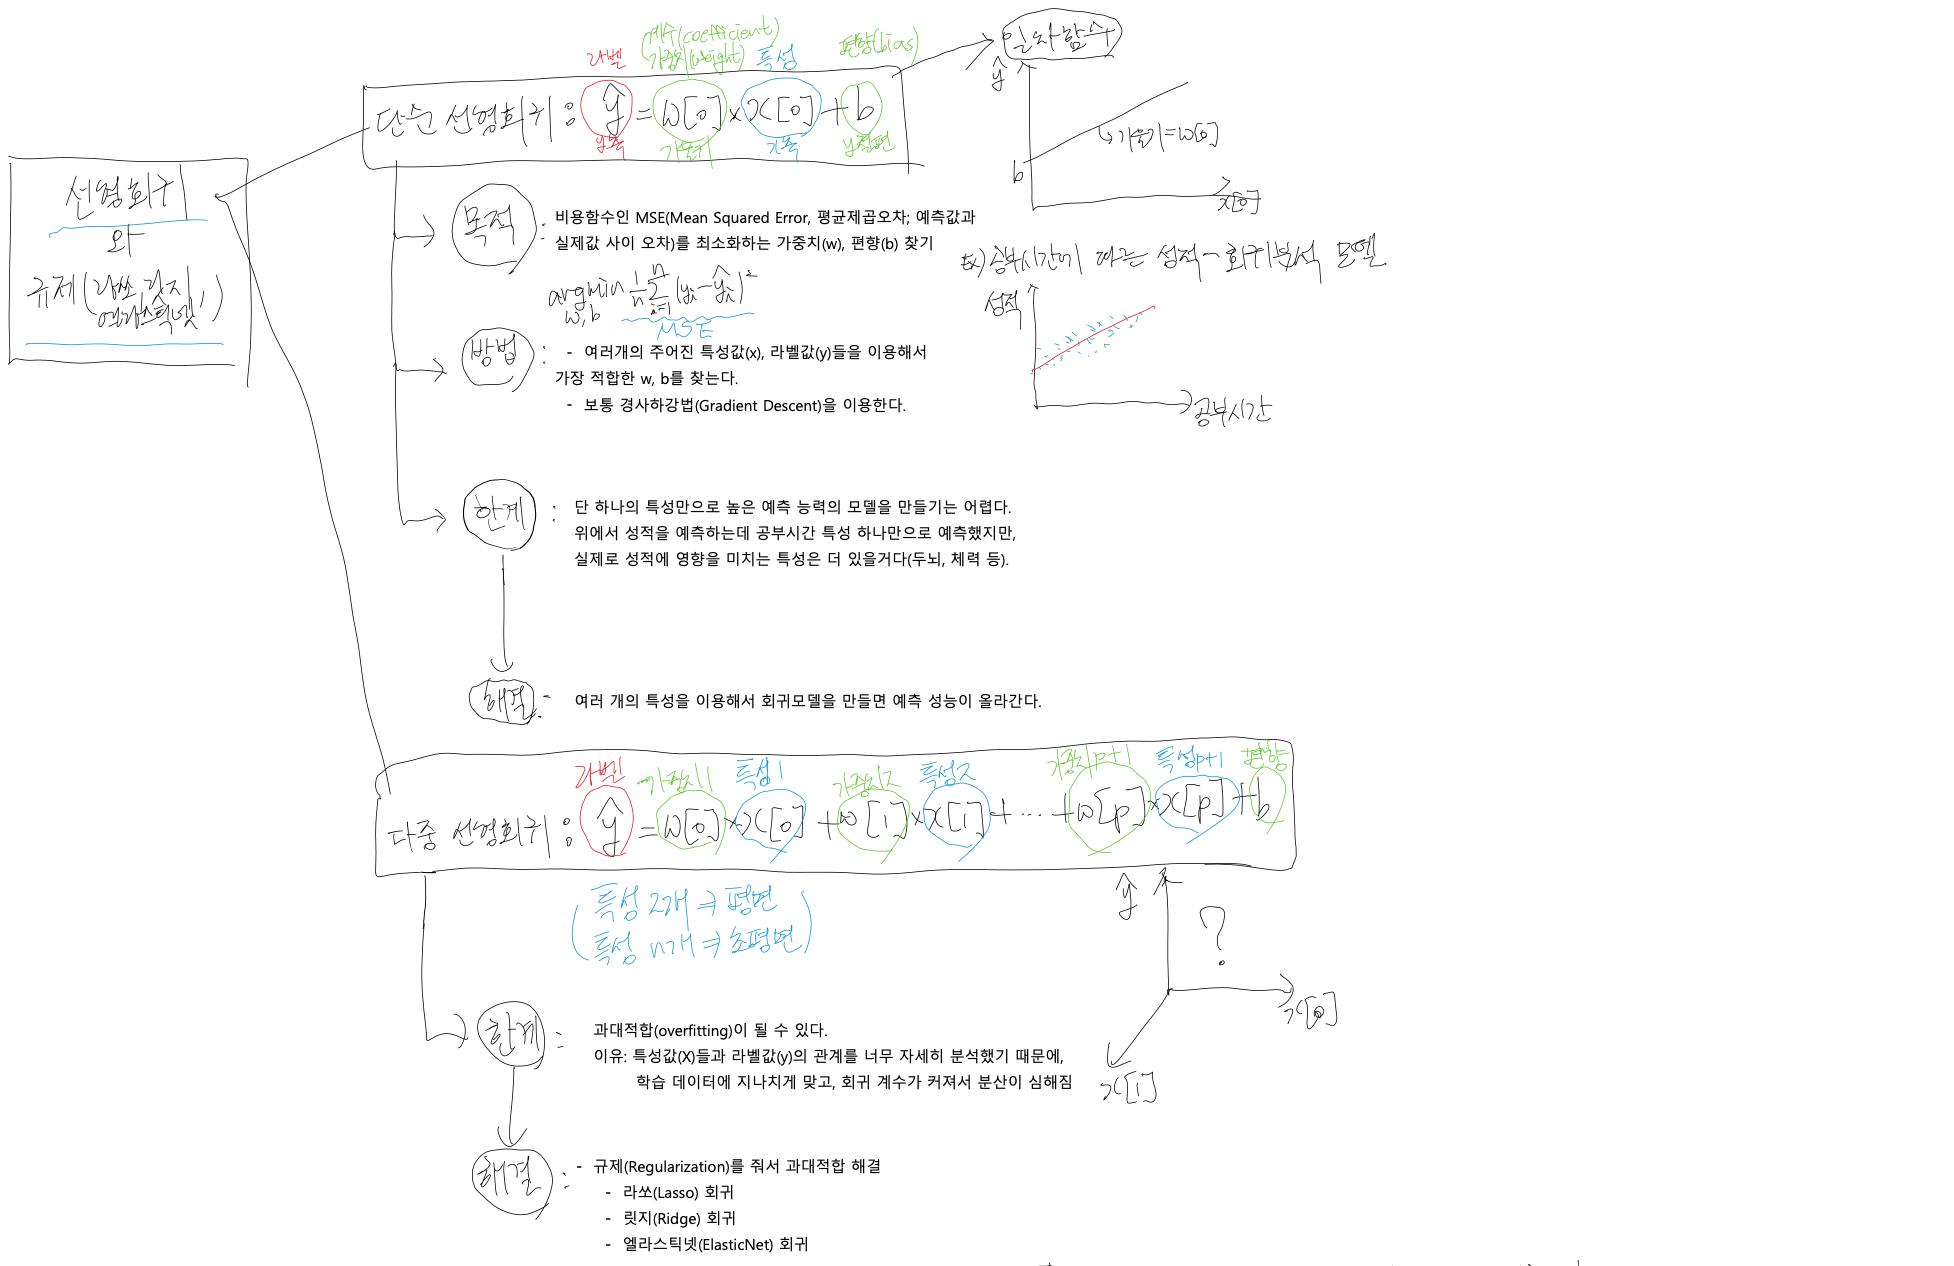 선형회귀
와
규제(라쏘, 릿지,
엘라스틱넷)
계수(coefficient)
라벨 가중치(weight) 특성 편향(bias)
단순 선형회귀 : ŷ = w[0] × x[0] + b
y축 기울기 x축 y절편
일차함수
ŷ
기울기=w[0]
b
x[0]
목적 : 비용함수인 MSE(Mean Squared Error, 평균제곱오차; 예측값과
실제값 사이 오차)를 최소화하는 가중치(w), 편향(b) 찾기
argmin 1/n Σ (yi-ŷi)²
w,b
n
i=1
MSE
Ex) 공부시간에 따른 성적 - 회귀분석 모델
성적
공부시간
방법 : - 여러개의 주어진 특성값(x), 라벨값(y)들을 이용해서
가장 적합한 w, b를 찾는다.
- 보통 경사하강법(Gradient Descent)을 이용한다.
한계 : 단 하나의 특성만으로 높은 예측 능력의 모델을 만들기는 어렵다.
위에서 성적을 예측하는데 공부시간 특성 하나만으로 예측했지만,
실제로 성적에 영향을 미치는 특성은 더 있을거다(두뇌, 체력 등).
해결 : 여러 개의 특성을 이용해서 회귀모델을 만들면 예측 성능이 올라간다.
라벨 가중치1 특성1 가중치2 특성2 가중치p+1 특성p+1 편향
다중 선형회귀 : ŷ = w[0] × x[0] + w[1] × x[1] + ... + w[p] × x[p] + b
(특성 2개 ⇒ 평면
특성 n개 ⇒ 초평면)
ŷ
?
x[0]
x[1]
한계 : 과대적합(overfitting)이 될 수 있다.
이유: 특성값(X)들과 라벨값(y)의 관계를 너무 자세히 분석했기 때문에,
학습 데이터에 지나치게 맞고, 회귀 계수가 커져서 분산이 심해짐
해결 : - 규제(Regularization)를 줘서 과대적합 해결
- 라쏘(Lasso) 회귀
- 릿지(Ridge) 회귀
- 엘라스틱넷(ElasticNet) 회귀